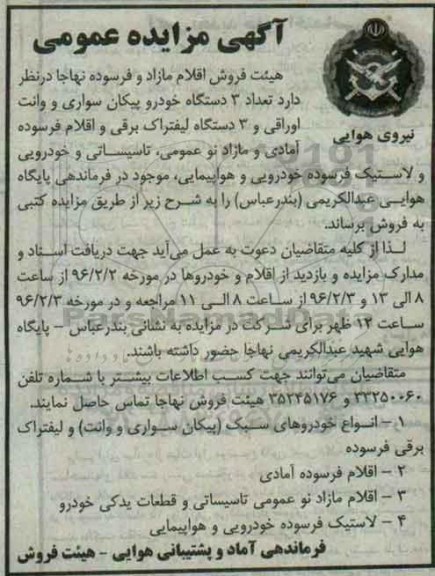 آگهی مزایده عمومی
نیروی هوایی
هیئت فروش اقلام مازاد و فرسوده نهاجا درنظر
دارد تعداد ۳ دستگاه خودرو پیکان سواری و وانت
اوراقی و ۳ دستگاه لیفتراک برقی و اقلام فرسوده
آمادی و مازاد نو عمومی، تاسیساتی و خودرویی
و لاستیک فرسوده خودرویی و هواپیمایی، موجود در فرماندهی پایگاه
هوایی عبدالکریمی (بندرعباس) را به شرح زیر از طریق مزایده کتبی
به فروش برساند.
لذا از کلیه متقاضیان دعوت به عمل می‌آید جهت دریافت اسناد و
مدارک مزایده و بازدید از اقلام و خودروها در مورخه ۹۶/۲/۲ از ساعت
۸ الی ۱۳ و ۹۶/۲/۳ از ساعت ۸ الی ۱۱ مراجعه و در مورخه ۹۶/۲/۳
ساعت ۱۲ ظهر برای شرکت در مزایده به نشانی بندرعباس – پایگاه
هوایی شهید عبدالکریمی نهاجا حضور داشته باشند.
متقاضیان می‌توانند جهت کسب اطلاعات بیشتر با شماره تلفن
۳۳۲۵۰۰۶۰ و ۳۵۲۳۵۱۷۶ هیئت فروش نهاجا تماس حاصل نمایند.
۱ – انواع خودروهای سبک (پیکان سواری و وانت) و لیفتراک
برقی فرسوده
۲ – اقلام فرسوده آمادی
۳ – اقلام مازاد نو عمومی تاسیساتی و قطعات یدکی خودرو
۴ – لاستیک فرسوده خودرویی و هواپیمایی
فرماندهی آماد و پشتیبانی هوایی – هیئت فروش
ParsNamadData